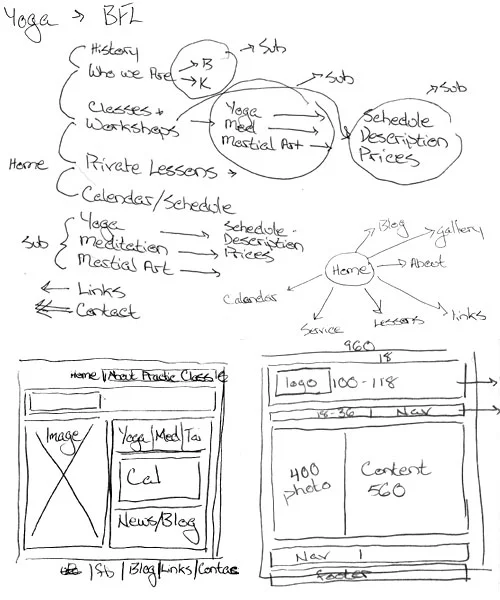 Yoga → BFL
History
Who we Are → B
→ K
→ Sub
Classes +
Workshops
Yoga
Med
Martial Art
→ Sub
Schedule
Description
Prices
→ Sub
Home
Private Lessons
Calendar/Schedule
Sub
Yoga
Meditation
Martial Art
Schedule
Description
Prices
Links
Contact
Blog
gallery
Home
About
Calendar
Service
Lessons
Links
Home | About Practic Class
Image
Yoga | Med | Tai
Cal
News/Blog
| Fb | Blog | Links | Contac
960
18
logo 100-118
18-36 | Nav
400
photo
Content
560
Nav |
footer